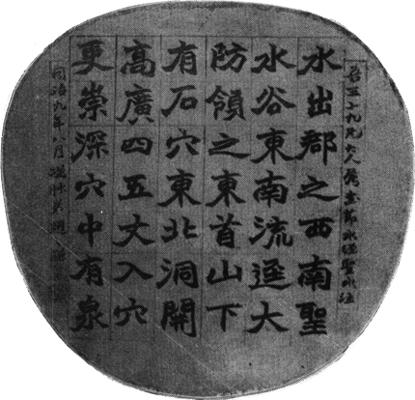 九兄大人屬書節水經聖水注
水出郡之西南聖
水谷東南流逕大
防領之東首山下
有石穴東北洞開
高廣四五丈入穴
更崇深穴中有泉
同治九年八月